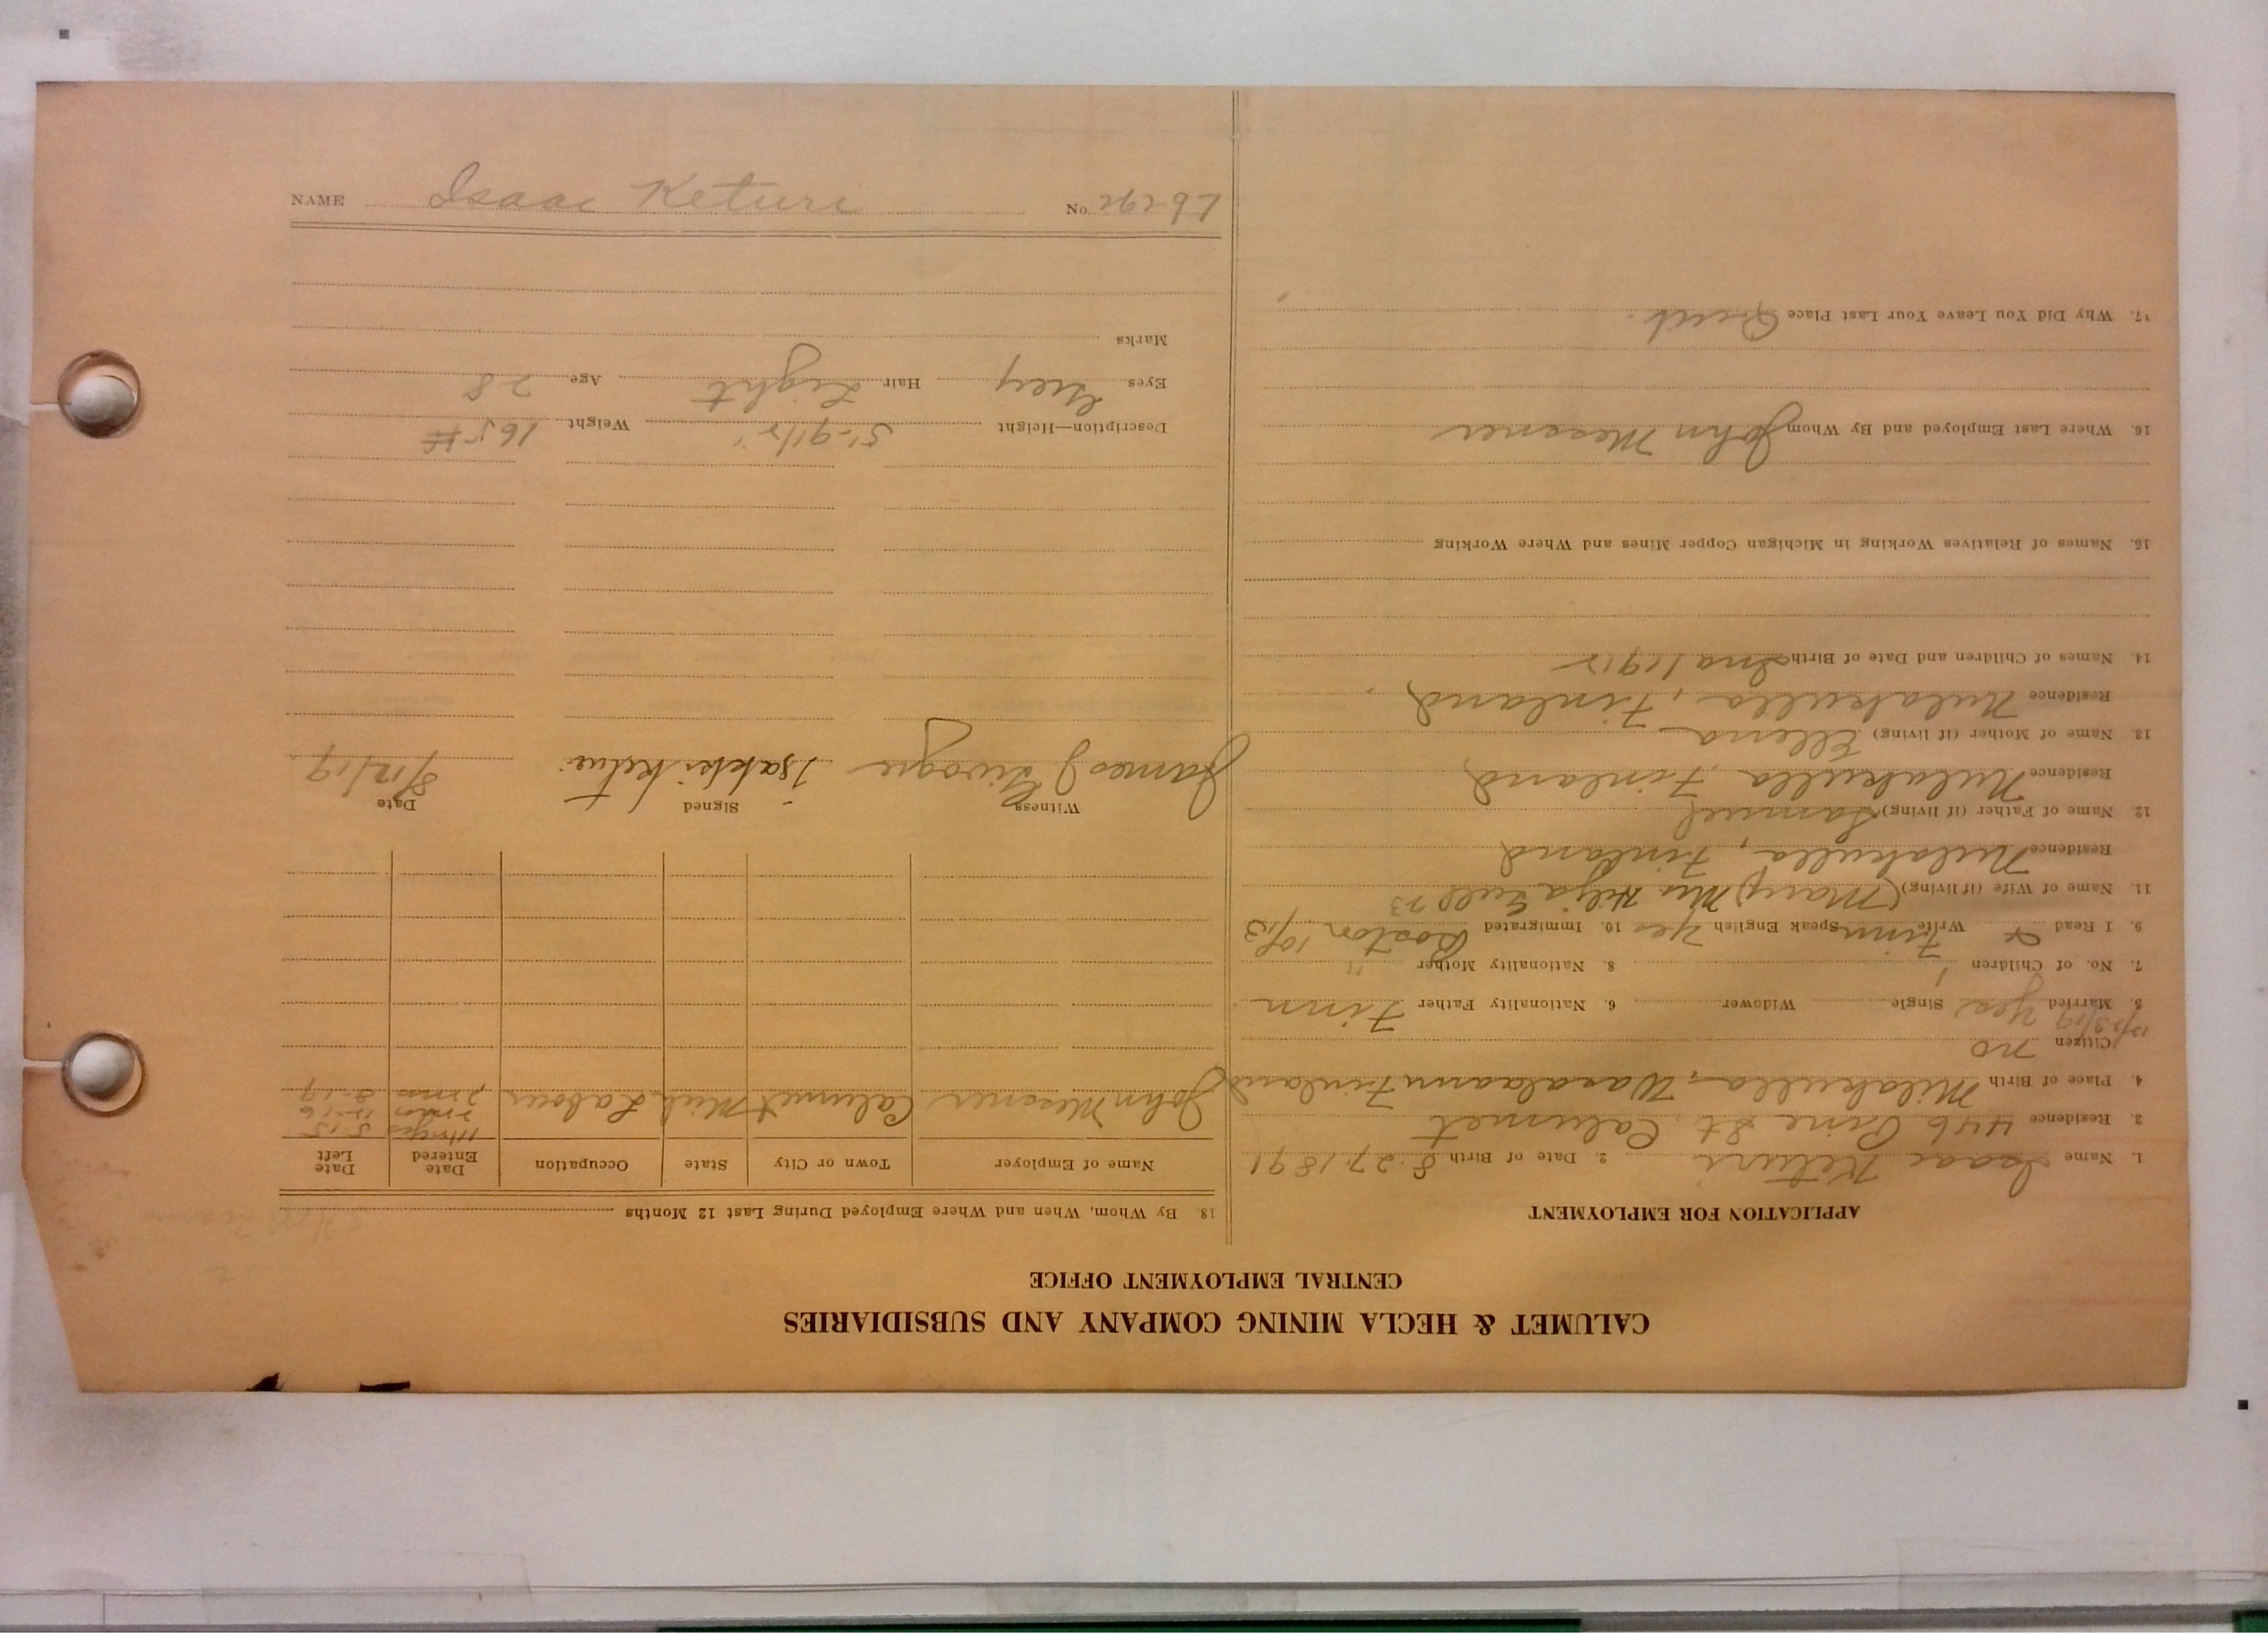 CALUMET & HECLA MINING COMPANY AND SUBSIDIARIES
CENTRAL EMPLOYMENT OFFICE
APPLICATION FOR EMPLOYMENT
1. Name Isaac Keturi 2. Date of Birth 8-27 1891
3. Residence 446 Pine St. Calumet
4. Place of Birth Milakulla, Wasalaann Finland
Citizen no
5. Married Yes Single Widower 6. Nationality Father Finn
7. No. of Children 1 8. Nationality Mother "
9. I Read & Write Finn Speak English Yes 10. Immigrated Boston 10/13
11. Name of Wife (if living) (Mary) Mrs Hilja
Residence Nulakulla, Finland
12. Name of Father (if living) Samuel
Residence Nulakulla Finland
13. Name of Mother (if living) Ellena
Residence Nulakulla, Finland
14. Names of Children and Date of Birth 1912
15. Names of Relatives Working in Michigan Copper Mines and Where Working
16. Where Last Employed and By Whom John Messner
17. Why Did You Leave Your Last Place Quit.
18. By Whom, When and Where Employed During Last 12 Months
Name of Employer Town or City State Occupation Date Entered Date Left
John Messner Calumet Mich Labour
5-15
11-16
2 mos 8-19
Witness Signed Date
James J Isakki Keturi 8/12/19
Description—Height 5'-9 1/2" Weight 165 #
Eyes Grey Hair Light Age 28
Marks
NAME Isaac Keturi No.